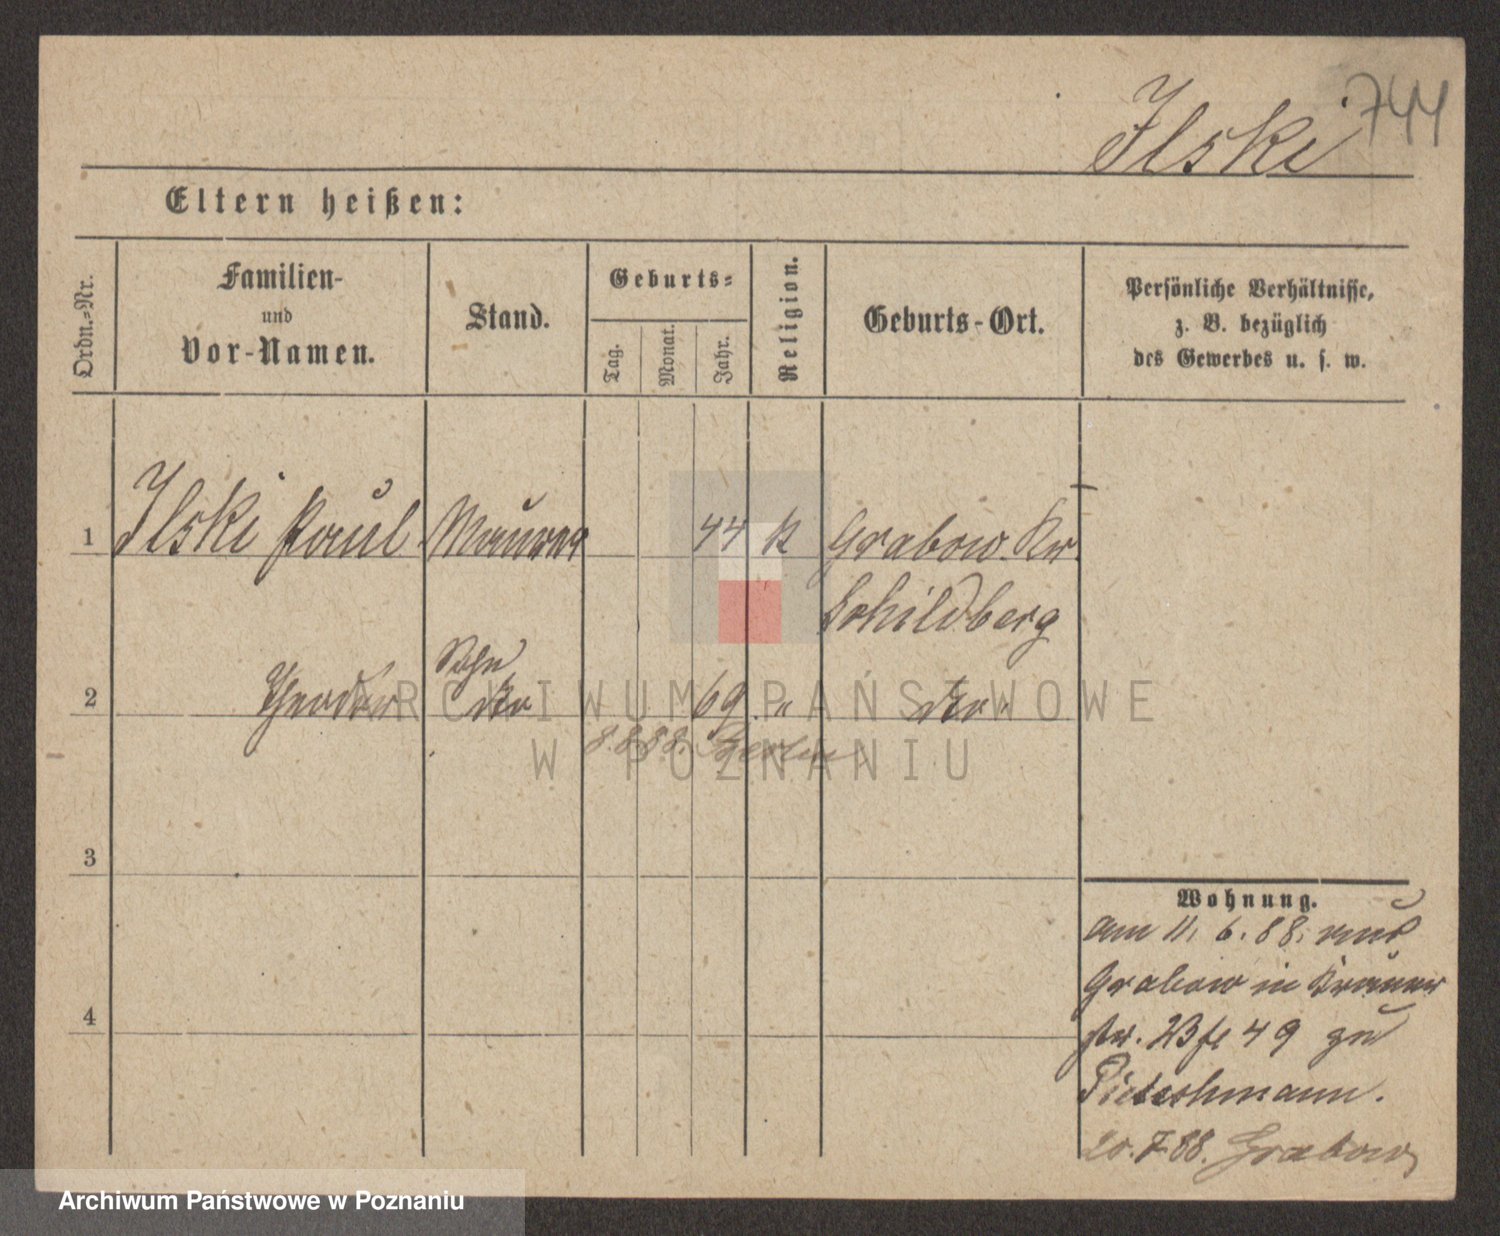 744
Ilski
Eltern heißen:
Ordn.-Nr.
Familien-
und
Vor-Namen.
Stand.
Geburts-
Tag.
Monat.
Jahr.
Religion.
Geburts-Ort.
Persönliche Verhältnisse,
z. B. bezüglich
des Gewerbes u. s. w.
1 Ilski Paul Maurer 44 K Grabow Kr.
Schildberg
Sohn
2 Theodor 69 "
8.8.88. Berlin
3
4
Wohnung.
am 11. 6. 88. aus
Grabow in
str. 49 zu
Pietschmann.
20.7.88. Grabow
ARCHIWUM PAŃSTWOWE
W POZNANIU
Archiwum Państwowe w Poznaniu